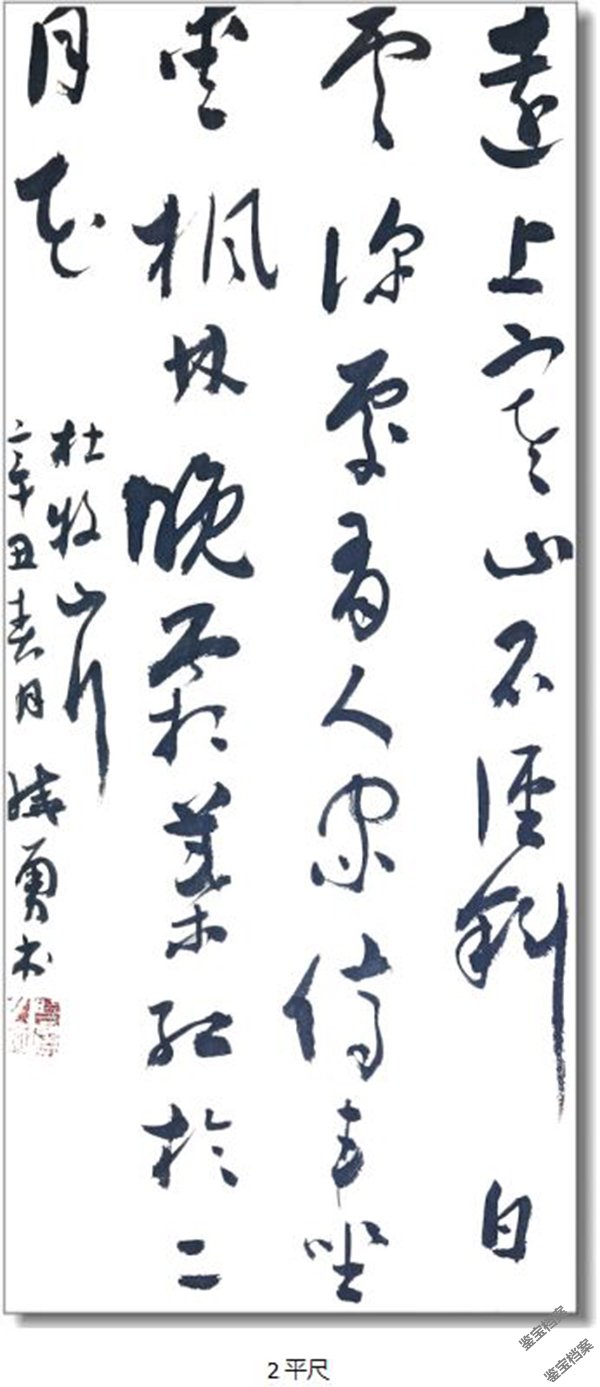 遠上寒山石徑斜白
云深處有人家停車坐
愛楓林晚霜葉紅於二
月花
杜牧山行
辛丑春月 勇书
2平尺
鉴宝档案
鉴宝档案